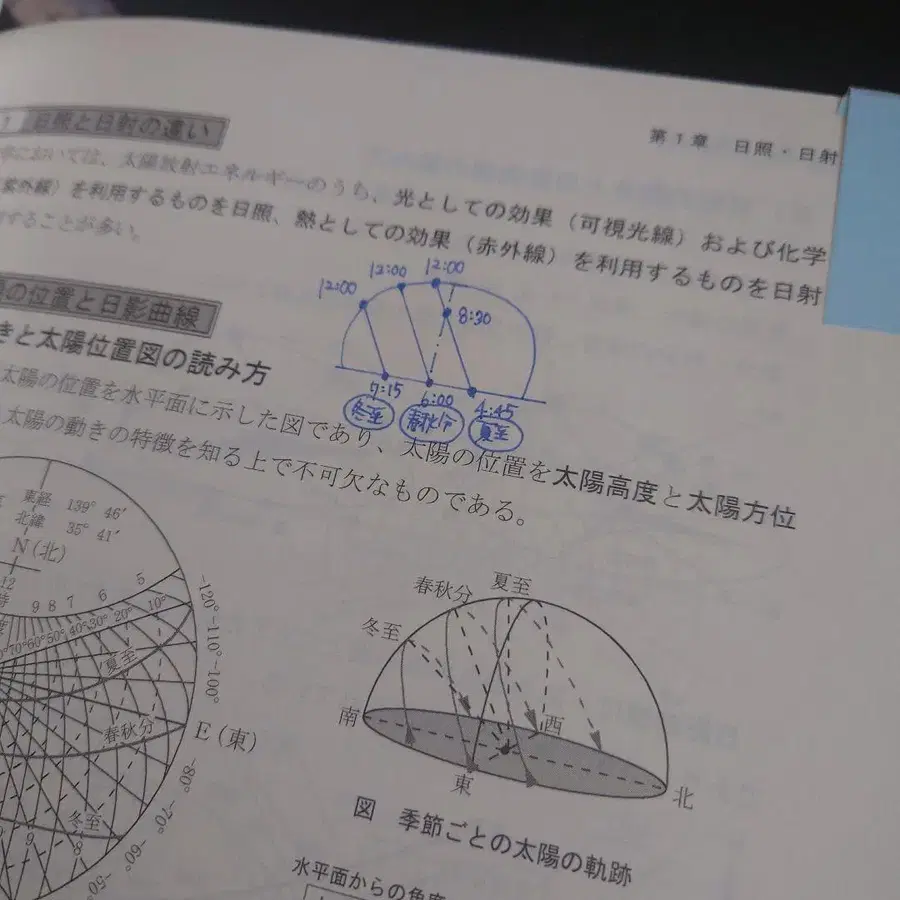 第1章 日照・日射
1 日照と日射の違い
においては、太陽放射エネルギーのうち、光としての効果（可視光線）および化学
紫外線）を利用するものを日照、熱としての効果（赤外線）を利用するものを日射
することが多い。
の位置と日影曲線
きと太陽位置図の読み方
12:00
12:00
12:00
8:30
7:15
6:00
4:45
冬至
春秋分
夏至
太陽の位置を水平面に示した図であり、太陽の位置を太陽高度と太陽方位
太陽の動きの特徴を知る上で不可欠なものである。
東経 139° 46′
北緯 35° 41′
N（北）
12
9 8 7 6 5
70° 60° 50° 40° 30° 20° 10°
夏至
春秋分
冬至
9
8
-120°
-110°
-100°
E（東）
-80°
-70°
-60°
-50°
夏至
春秋分
冬至
南
西
東
北
図 季節ごとの太陽の軌跡
水平面からの角度